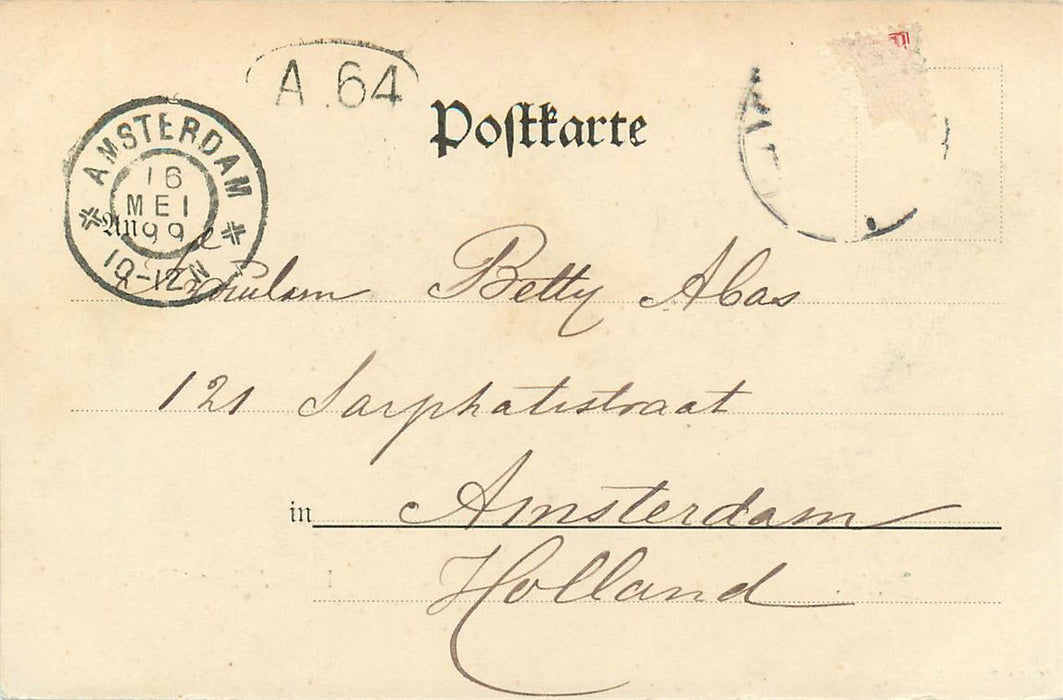 A.64
Postkarte
AMSTERDAM
16
MEI
99
10-12N
An
Betty Abas
121 Sarphatistraat
in Amsterdam
Holland